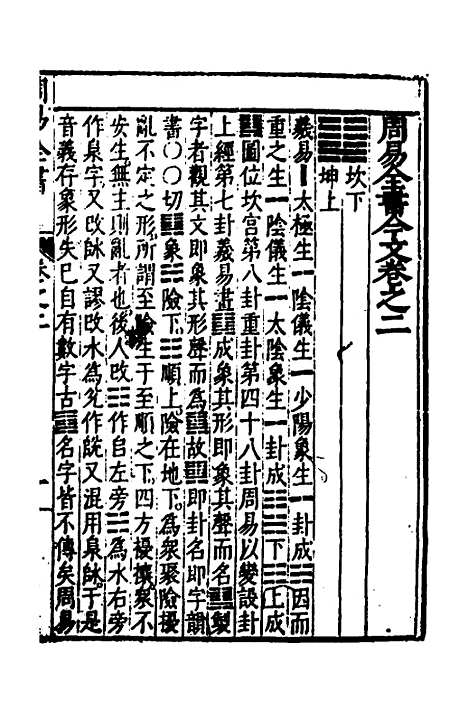 周易全書今文卷之二
䷆坎下
坤上
羲易一太極生一陰儀生一少陽象生一卦成☵因而
重之生一陰儀生一太陰象生一卦成☷☵下☷上成
䷆圖位坎宮第八卦重卦第四十八卦周易以變設卦
上經第七卦羲易畫䷆成象其形即象其聲而名䷆製
字者觀其文即象其形聲而為䷆故䷆即卦名即字韻
書〇〇切䷆象☵險下☷順上險在地下為衆聚險擾
亂不定之形所謂至險生于至順之下四方擾攘衆不
安生無主則亂者也後人改☷作𠂤左旁☵為水右旁
作㡭字又改䀢又謬改水為 作 又混用㡭䀢于是
音義存象形失已自有數字古䷆名字皆不傳矣周易
周易全書
卷之二
一